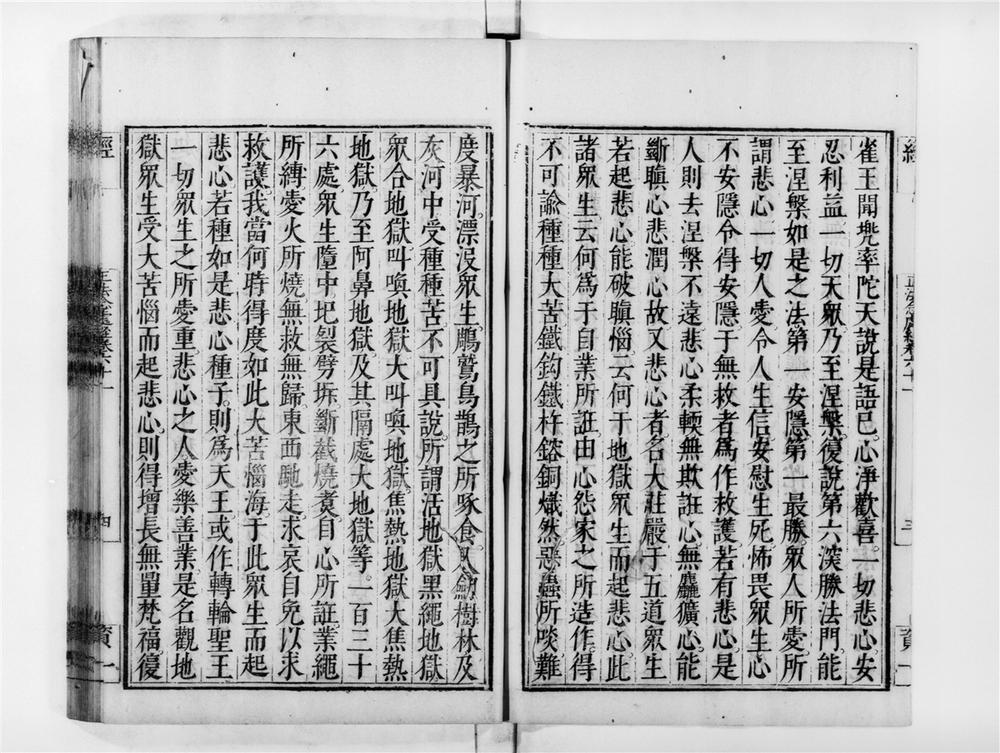 雀王聞兜率陀天說是語已心淨歡喜一切悲心安
忍利益一切天眾乃至涅槃復說第六深勝法門能
至涅槃如是之法第一安隱第一最勝眾人所愛所
謂悲心一切人愛令人生信安慰生死怖畏眾生心
不安隱令得安隱于無救者為作救護若有悲心是
人則去涅槃不遠悲心柔輭無欺誑心無麤獷心能
斷瞋心悲潤心故又悲心者名大莊嚴于五道眾生
若起悲心能破瞋惱云何于地獄眾生而起悲心此
諸眾生云何為于自業所誑由心怨家之所造作得
不可諭種種大苦鐵鉤鐵杵鎔銅熾然惡蟲所啖難
度暴河漂沒眾生鵰鷲烏鵲之所啄食入劒樹林及
灰河中受種種苦不可具說所謂活地獄黑繩地獄
眾合地獄叫喚地獄大叫喚地獄焦熱地獄大焦熱
地獄乃至阿鼻地獄及其隔處大地獄等一百三十
六處眾生墮中圮裂劈坼斷截燒煮自心所誑業繩
所縛愛火所燒無救無歸東西馳走求哀自免以求
救護我當何時得度如此大苦惱海于此眾生而起
悲心若種如是悲心種子則為天王或作轉輪聖王
一切眾生之所愛重悲心之人愛樂善業是名觀地
獄眾生受大苦惱而起悲心則得增長無量梵福復